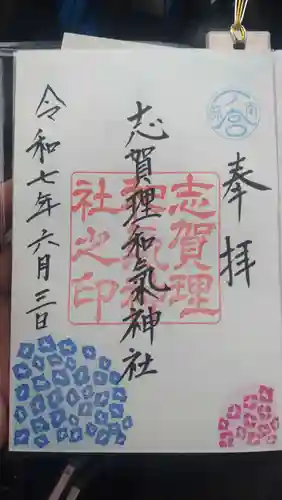 奉拝
志賀理和氣神社
令和七年六月三日
志賀理
和氣神
社之印
一宮